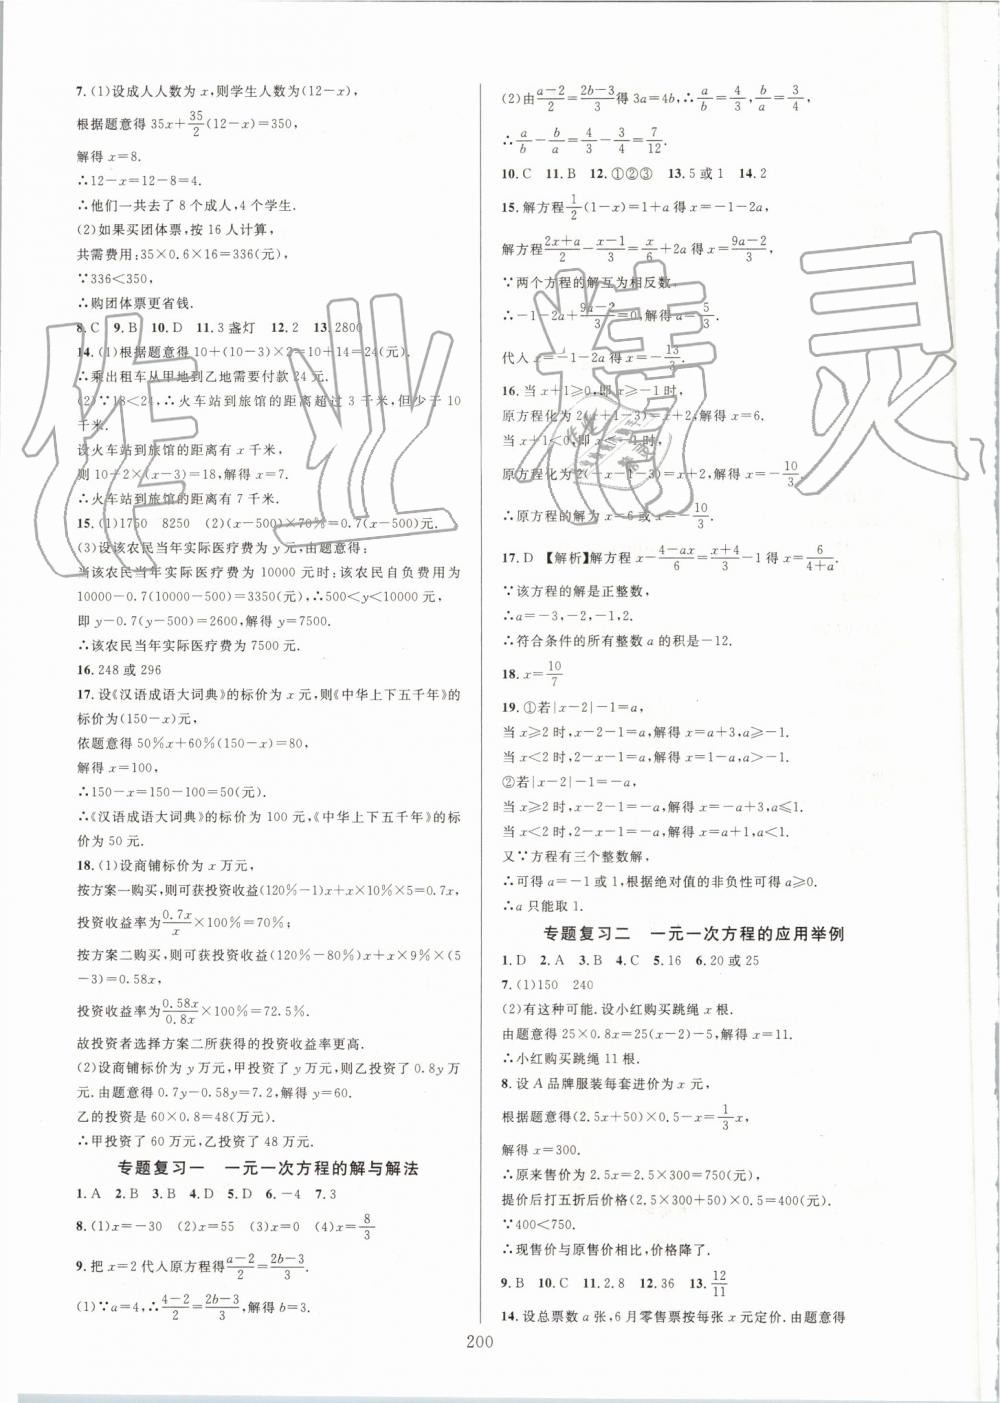 7. (1)设成人人数为 x,则学生人数为(12-x),
根据题意得 35x+35/2(12-x)=350,
解得 x=8.
∴12-x=12-8=4.
∴他们一共去了 8 个成人,4 个学生.
(2)如果买团体票,按 16 人计算,
共需费用:35×0.6×16=336(元),
∵336<350,
∴购团体票更省钱.
8.C 9.B 10.D 11.3 盏灯 12.2 13.2800
14. (1)根据题意得 10+(10-3)×2=10+14=24(元).
∴乘出租车从甲地到乙地需要付款 24 元.
(2)∵18<24,∴火车站到旅馆的距离超过 3 千米,但少于 10
千米.
设火车站到旅馆的距离有 x 千米,
则 10+2×(x-3)=18,解得 x=7.
∴火车站到旅馆的距离有 7 千米.
15. (1)1750 8250 (2)(x-500)×70%=0.7(x-500)元.
(3)设该农民当年实际医疗费为 y 元,由题意得:
当该农民当年实际医疗费为 10000 元时:该农民自负费用为
10000-0.7(10000-500)=3350(元),∴500<y<10000,
即 y-0.7(y-500)=2600,解得 y=7500.
∴该农民当年实际医疗费为 7500 元.
16. 248 或 296
17. 设《汉语成语大词典》的标价为 x 元,则《中华上下五千年》的
标价为(150-x)元,
依题意得 50%x+60%(150-x)=80,
解得 x=100,
∴150-x=150-100=50(元).
∴《汉语成语大词典》的标价为 100 元,《中华上下五千年》的标
价为 50 元.
18. (1)设商铺标价为 x 万元,
按方案一购买,则可获投资收益(120%-1)x+x×10%×5=0.7x,
投资收益率为0.7x/x×100%=70%;
按方案二购买,则可获投资收益(120%-80%)x+x×9%×(5
-3)=0.58x,
投资收益率为0.58x/0.8x×100%=72.5%.
故投资者选择方案二所获得的投资收益率更高.
(2)设商铺标价为 y 万元,甲投资了 y 万元,则乙投资了 0.8y 万
元.由题意得 0.7y-0.58y=7.2,解得 y=60.
乙的投资是 60×0.8=48(万元).
∴甲投资了 60 万元,乙投资了 48 万元.
专题复习一 一元一次方程的解与解法
1.A 2.B 3.B 4.D 5.D 6.-4 7.3
8. (1)x=-30 (2)x=55 (3)x=0 (4)x=8/3
9. 把 x=2 代人原方程得(a-2)/2=(2b-3)/3.
(1)∵a=4,∴(4-2)/2=(2b-3)/3,解得 b=3.
(2)由(a-2)/2=(2b-3)/3得 3a=4b,∴a/b=4/3,b/a=3/4,
∴a/b-b/a=4/3-3/4=7/12.
10.C 11.B 12.①②③ 13.5 或 1 14.2
15. 解方程1/2(1-x)=1+a 得 x=-1-2a,
解方程(2x+a)/2-(x-1)/3=x/6+2a 得 x=(9a-2)/3,
∵两个方程的解互为相反数,
∴-1-2a+(9a-2)/3=0,解得 a=5/3.
代入 x=-1-2a 得 x=-13/3.
16. 当 x+1≥0,即 x≥-1 时,
原方程化为 2(x+1-3)=x+2,解得 x=6.
当 x+1<0,即 x<-1 时,
原方程化为 2(-x-1-3)=x+2,解得 x=-10/3.
∴原方程的解为 x=6 或 x=-10/3.
17. D 【解析】解方程 x-(4-ax)/6=(x+4)/3-1 得 x=6/(4+a).
∵该方程的解是正整数,
∴a=-3,-2,-1,2.
∴符合条件的所有整数 a 的积是-12.
18. x=10/7
19. ①若|x-2|-1=a,
当 x≥2 时,x-2-1=a,解得 x=a+3,a≥-1.
当 x<2 时,2-x-1=a,解得 x=1-a,a>-1.
②若|x-2|-1=-a,
当 x≥2 时,x-2-1=-a,解得 x=-a+3,a≤1.
当 x<2 时,2-x-1=-a,解得 x=a+1,a<1.
又∵方程有三个整数解,
∴可得 a=-1 或 1,根据绝对值的非负性可得 a≥0.
∴a 只能取 1.
专题复习二 一元一次方程的应用举例
1.D 2.A 3.B 4.C 5.16 6.20 或 25
7. (1)150 240
(2)有这种可能. 设小红购买跳绳 x 根.
由题意得 25×0.8x=25(x-2)-5,解得 x=11.
∴小红购买跳绳 11 根.
8. 设 A 品牌服装每套进价为 x 元,
根据题意得(2.5x+50)×0.5-x=1/3x,
解得 x=300.
∴原来售价为 2.5x=2.5×300=750(元),
提价后打五折后价格(2.5×300+50)×0.5=400(元).
∵400<750.
∴现售价与原售价相比,价格降了.
9.B 10.C 11.2.8 12.36 13.12/11
14. 设总票数 a 张,6 月零售票按每张 x 元定价.由题意得
200
作业精灵